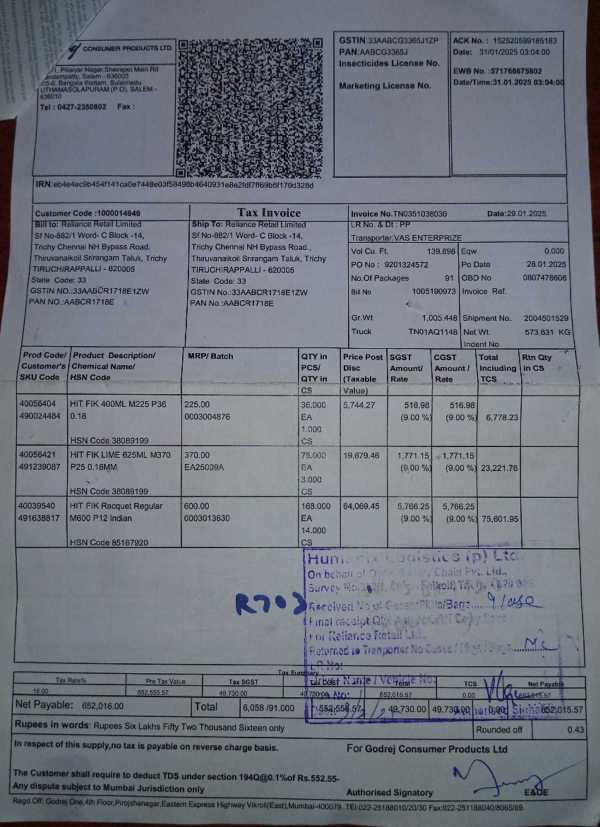 CONSUMER PRODUCTS LTD.
Pillaiyar Nagar, Shevapet Main Rd
Salem - 636005
UTHAMASOLAPURAM (P O), SALEM -
636010
Tel : 0427-2350802 Fax :
GSTIN :33AABCG3365J1ZP
PAN:AABCG3365J
Insecticides License No.
Marketing License No.
ACK No. : 152520599185183
Date: 31/01/2025 03:04:00
EWB No :571766675802
Date/Time:31.01.2025 03:04:00
Customer Code :1000014949
Bill to: Reliance Retail Limited
Sf No-882/1 Word- C Block -14,
Trichy Chennai NH Bypass Road,
Thiruvanaikoil Srirangam Taluk, Trichy
TIRUCHIRAPPALLI - 620005
State Code: 33
GSTIN NO.:33AABCR1718E1ZW
PAN NO.:AABCR1718E
Tax Invoice
Ship To: Reliance Retail Limited
Sf No-882/1 Word- C Block -14,
Trichy Chennai NH Bypass Road.,
Thiruvanaikoil Srirangam Taluk, Trichy
TIRUCHIRAPPALLI - 620005
State Code: 33
GSTIN NO.:33AABCR1718E1ZW
PAN NO.:AABCR1718E
Invoice No.TN0351038036 Date:29.01.2025
LR No. & Dt : PP
Transporter:VAS ENTERPRIZE
Vol Cu. Ft. 139.898 Eqw 0.000
PO No : 9201324572 Po Date 28.01.2025
No.Of Packages 91 OBD No 0807478606
Bill No 1005190973 Invoice Ref.
Gr.Wt 1,005.448 Shipment No. 2004501529
Truck TN01AQ1148 Net Wt. 573.631 KG
Indent No
Prod Code/ Customer's SKU Code Product Description/ Chemical Name/ HSN Code MRP/ Batch QTY in PCS/ QTY in CS Price Post Disc (Taxable Value) SGST Amount/ Rate CGST Amount / Rate Total Including TCS Rtn Qty in CS
40056404 HIT FIK 400ML M225 P36 225.00 36.000 5,744.27 516.98 516.98
490024484 0.18 0003004876 EA (9.00 %) (9.00 %) 6,778.23
1.000
HSN Code 38089199 CS
40056421 HIT FIK LIME 625ML M370 370.00 75.000 19,679.46 1,771.15 1,771.15
491239087 P25 0.18MM EA25009A EA (9.00 %) (9.00 %) 23,221.76
3.000
HSN Code 38089199 CS
40039540 HIT FIK Racquet Regular 600.00 168.000 64,069.45 5,766.25 5,766.25
491638817 M600 P12 Indian 0003013630 EA (9.00 %) (9.00 %) 75,601.95
14.000
HSN Code 85167920 CS
Logistics (p) Ltd
On behalf of Chain Pvt. Ltd.,
Survey No
R703
Received No of
Final receipt Qty
For Reliance Retail Ltd.
Returned to Tranporter No
LR No:
Tax Summary
Tax Rate% Pre Tax Value Tax SGST Total Tax TCS Net Payable
18.00 552,555.57 49,730.00 49,730.00 652,015.57 0.00
Net Payable: 652,016.00 Total 6,058 /91.000 552,555.57 49,730.00 49,730.00 0.00 652,015.57
Rupees in words: Rupees Six Lakhs Fifty Two Thousand Sixteen only Rounded off 0.43
In respect of this supply,no tax is payable on reverse charge basis.
For Godrej Consumer Products Ltd
The Customer shall require to deduct TDS under section 194Q@0.1%of Rs.552.55-
Any dispute subject to Mumbai Jurisdiction only
Authorised Signatory E&OE
Regd.Off: Godrej One,4th Floor,Pirojshanagar,Eastern Express Highway Vikroli(East),Mumbai-400079. TEl:022-25188010/20/30 Fax:022-25188040/8065/69.